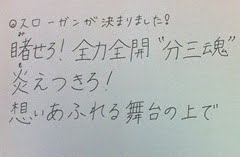 ◎スローガンが決まりました!
賭せろ! 全力全開“分三魂”
炎えつきろ!
想いあふれる舞台の上で